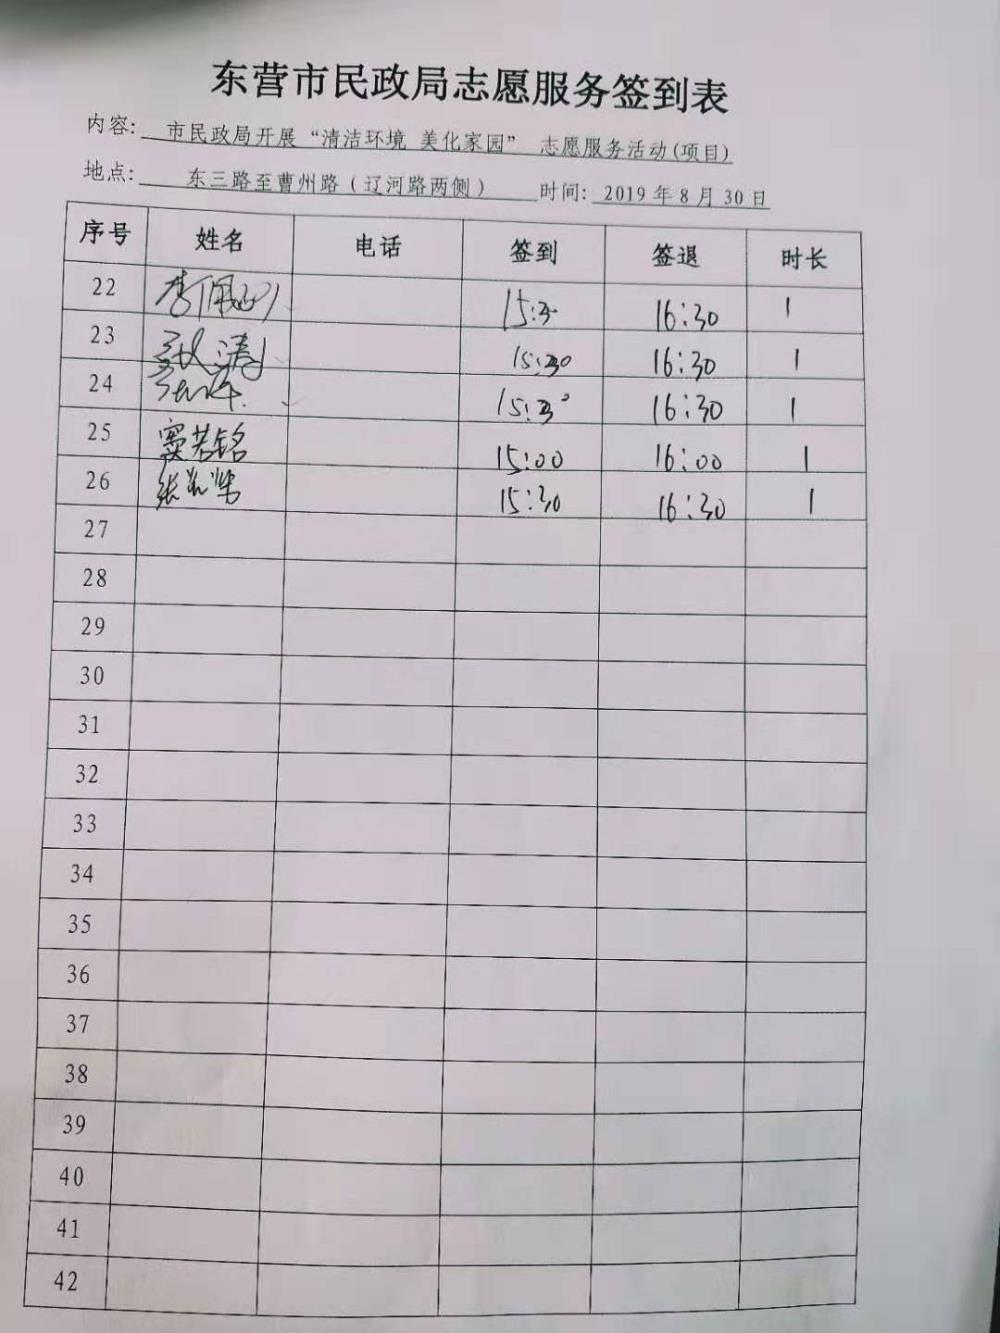 东营市民政局志愿服务签到表
内容: 市民政局开展“清洁环境 美化家园” 志愿服务活动(项目)
地点: 东三路至曹州路（辽河路两侧） 时间: 2019年8月30日
序号 姓名 电话 签到 签退 时长
22 李佩 15:3 16:30 1
23 涛 15:30 16:30 1
24 15:30 16:30 1
25 窦若铭 15:00 16:00 1
26 张 15:30 16:30 1
27
28
29
30
31
32
33
34
35
36
37
38
39
40
41
42